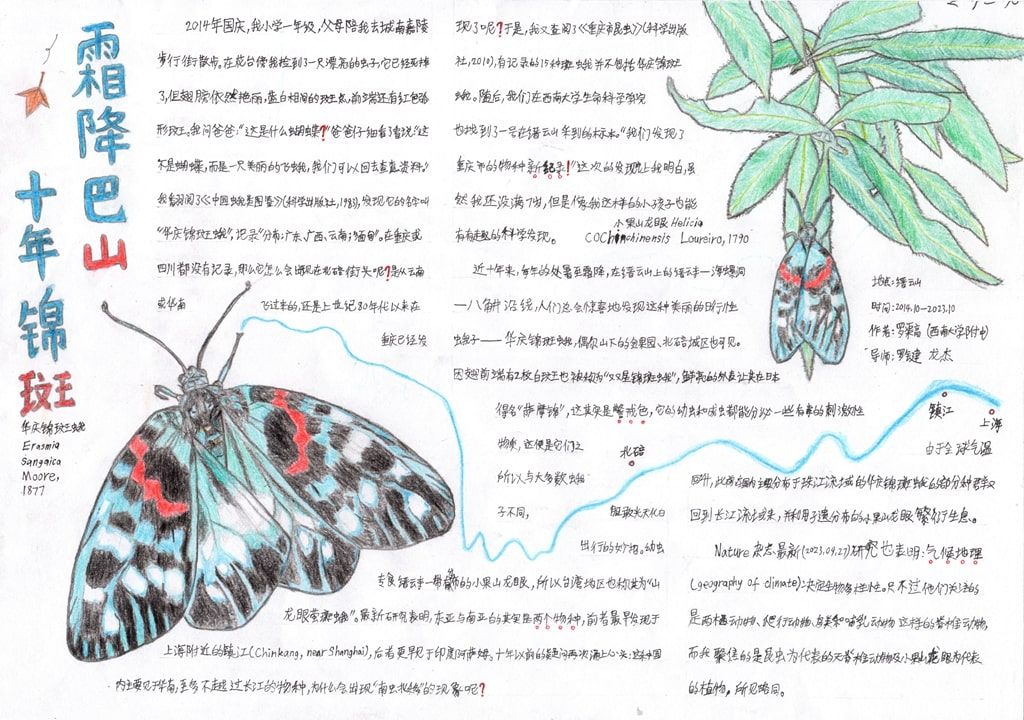 霜降巴山
十年锦斑
华庆锦斑蛾
Erasmia
Sangaica
Moore,
1877
2014年国庆,我小学一年级,父母陪我去城南嘉陵
步行街散步。在花台傍我检到了一只漂亮的虫子,它已经死掉
了,但翅膀依然艳丽,蓝白相间的斑点,前端还有红色
形斑。我问爸爸:“这是什么蝴蝶?”爸爸仔细看了看说:“这
不是蝴蝶,而是一只美丽的飞蛾,我们可以回去查查资料。”
我翻阅了《中国蛾类图鉴》(科学出版社,1983),发现它的名字叫
“华庆锦斑蛾”,记录“分布:广东、广西、云南;缅甸”。在重庆或
四川都没有记录,那么它怎么会出现在北碚街头呢?是从云南
或华南
飞过来的,还是上世纪80年代以来在
重庆已经发
现了呢?于是,我又查阅了《重庆市昆虫》(科学出版
社,2010),有记录的15种斑蛾并不包括华庆锦斑
蛾。随后,我们在西南大学生命科学学院
也找到了一号在缙云山采到的标本。“我们发现了
重庆市的物种新纪录!”这次的发现让我明白,虽
然我还没满7岁,但是像我这样的小孩子也能
有有趣的科学发现。
小果山龙眼 Helicia
COChinchinensis Loureiro, 1790
近十年来,每年的处暑至霜降,在缙云山上的缙云寺—海螺洞
—八角井沿线,人们总会惊喜地发现这种美丽的日行性
蛾子——华庆锦斑蛾,偶尔山下的金果园、北碚城区也可见。
因翅前端有2枚白斑王也被称为“双星锦斑蛾”,鲜亮的外表让其在日本
得名“萨摩锦”,这其实是警戒色,它的幼虫和成虫都能分泌一些有毒的刺激性
物质,这便是它们之
所以与大多数蛾
子不同,
胆敢光天化日
出行的妙招。幼虫
专食缙云寺一带分布的小果山龙眼,所以台湾地区也称其为“山
龙眼萤斑蛾”。最新研究表明,东亚与南亚的其实是两个物种,前者最早发现于
上海附近的镇江(Chinkang, near Shanghai),后者更早见于印度阿萨姆。十年以前的疑问再次涌上心头:这种国
内主要见于华南,至多不超过长江的物种,为什么会出现“南虫北移”的现象呢?
北碚
镇江
上海
由于全球气温
回升,此前国内主要分布于珠江流域的华庆锦斑蛾的部分种群又
回到长江流域来,并利用孑遗分布的小果山龙眼繁衍生息。
Nature杂志最新(2023.09.27)研究也表明:气候地理
(geography of climate)决定生物多样性。只不过他们关注的
是两栖动物、爬行动物、鸟类和哺乳动物这样的脊椎动物,
而我聚焦的是昆虫为代表的无脊椎动物及小果山龙眼为代表
的植物。所见略同。
地点:缙云山
时间:2014.10-2023.10
作者:罗 (西南大学附中)
导师:罗键 龙杰